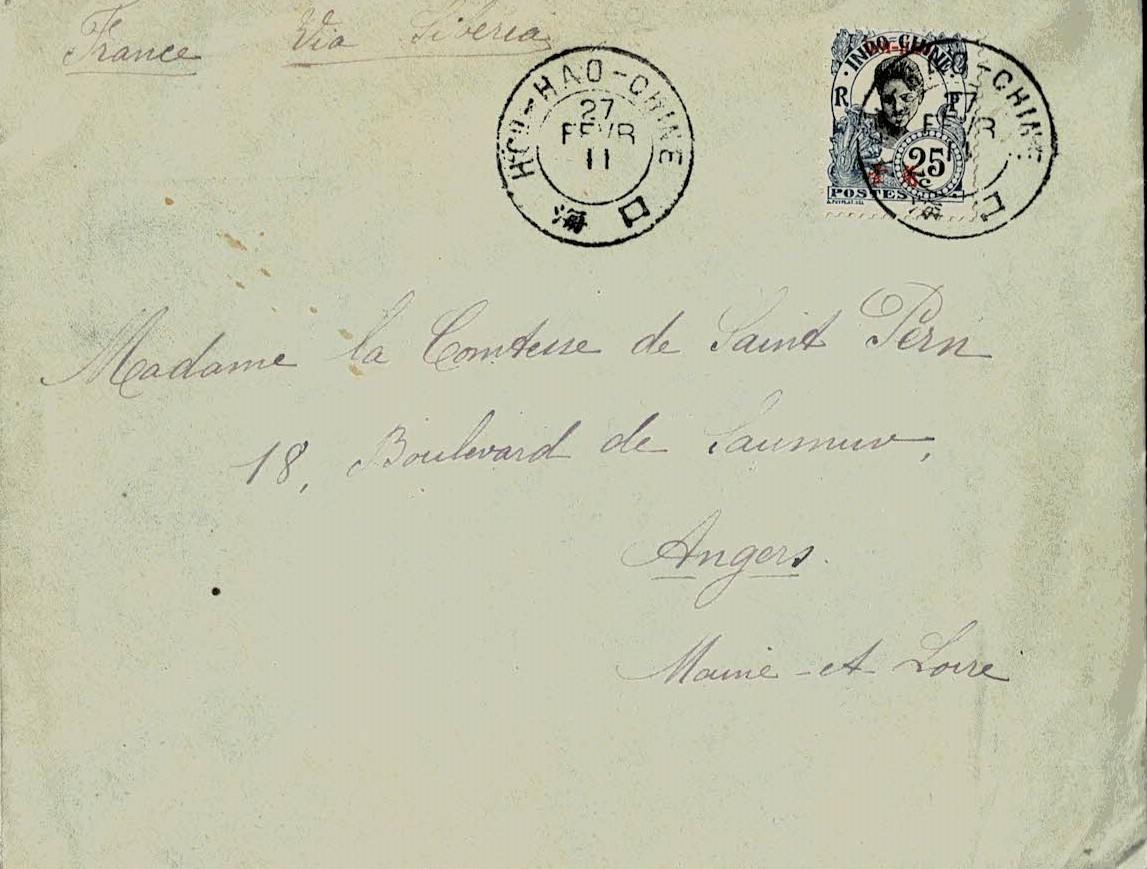 France Via Siberia
HOI-HAO-CHINE
27
FEVR
11
海口
INDO-CHINE
R F
25
c
POSTES
-CHINE
FEVR
口
Madame la Comtesse de Saint Pern
18, Boulevard de Saumur,
Angers.
Maine-et Loire